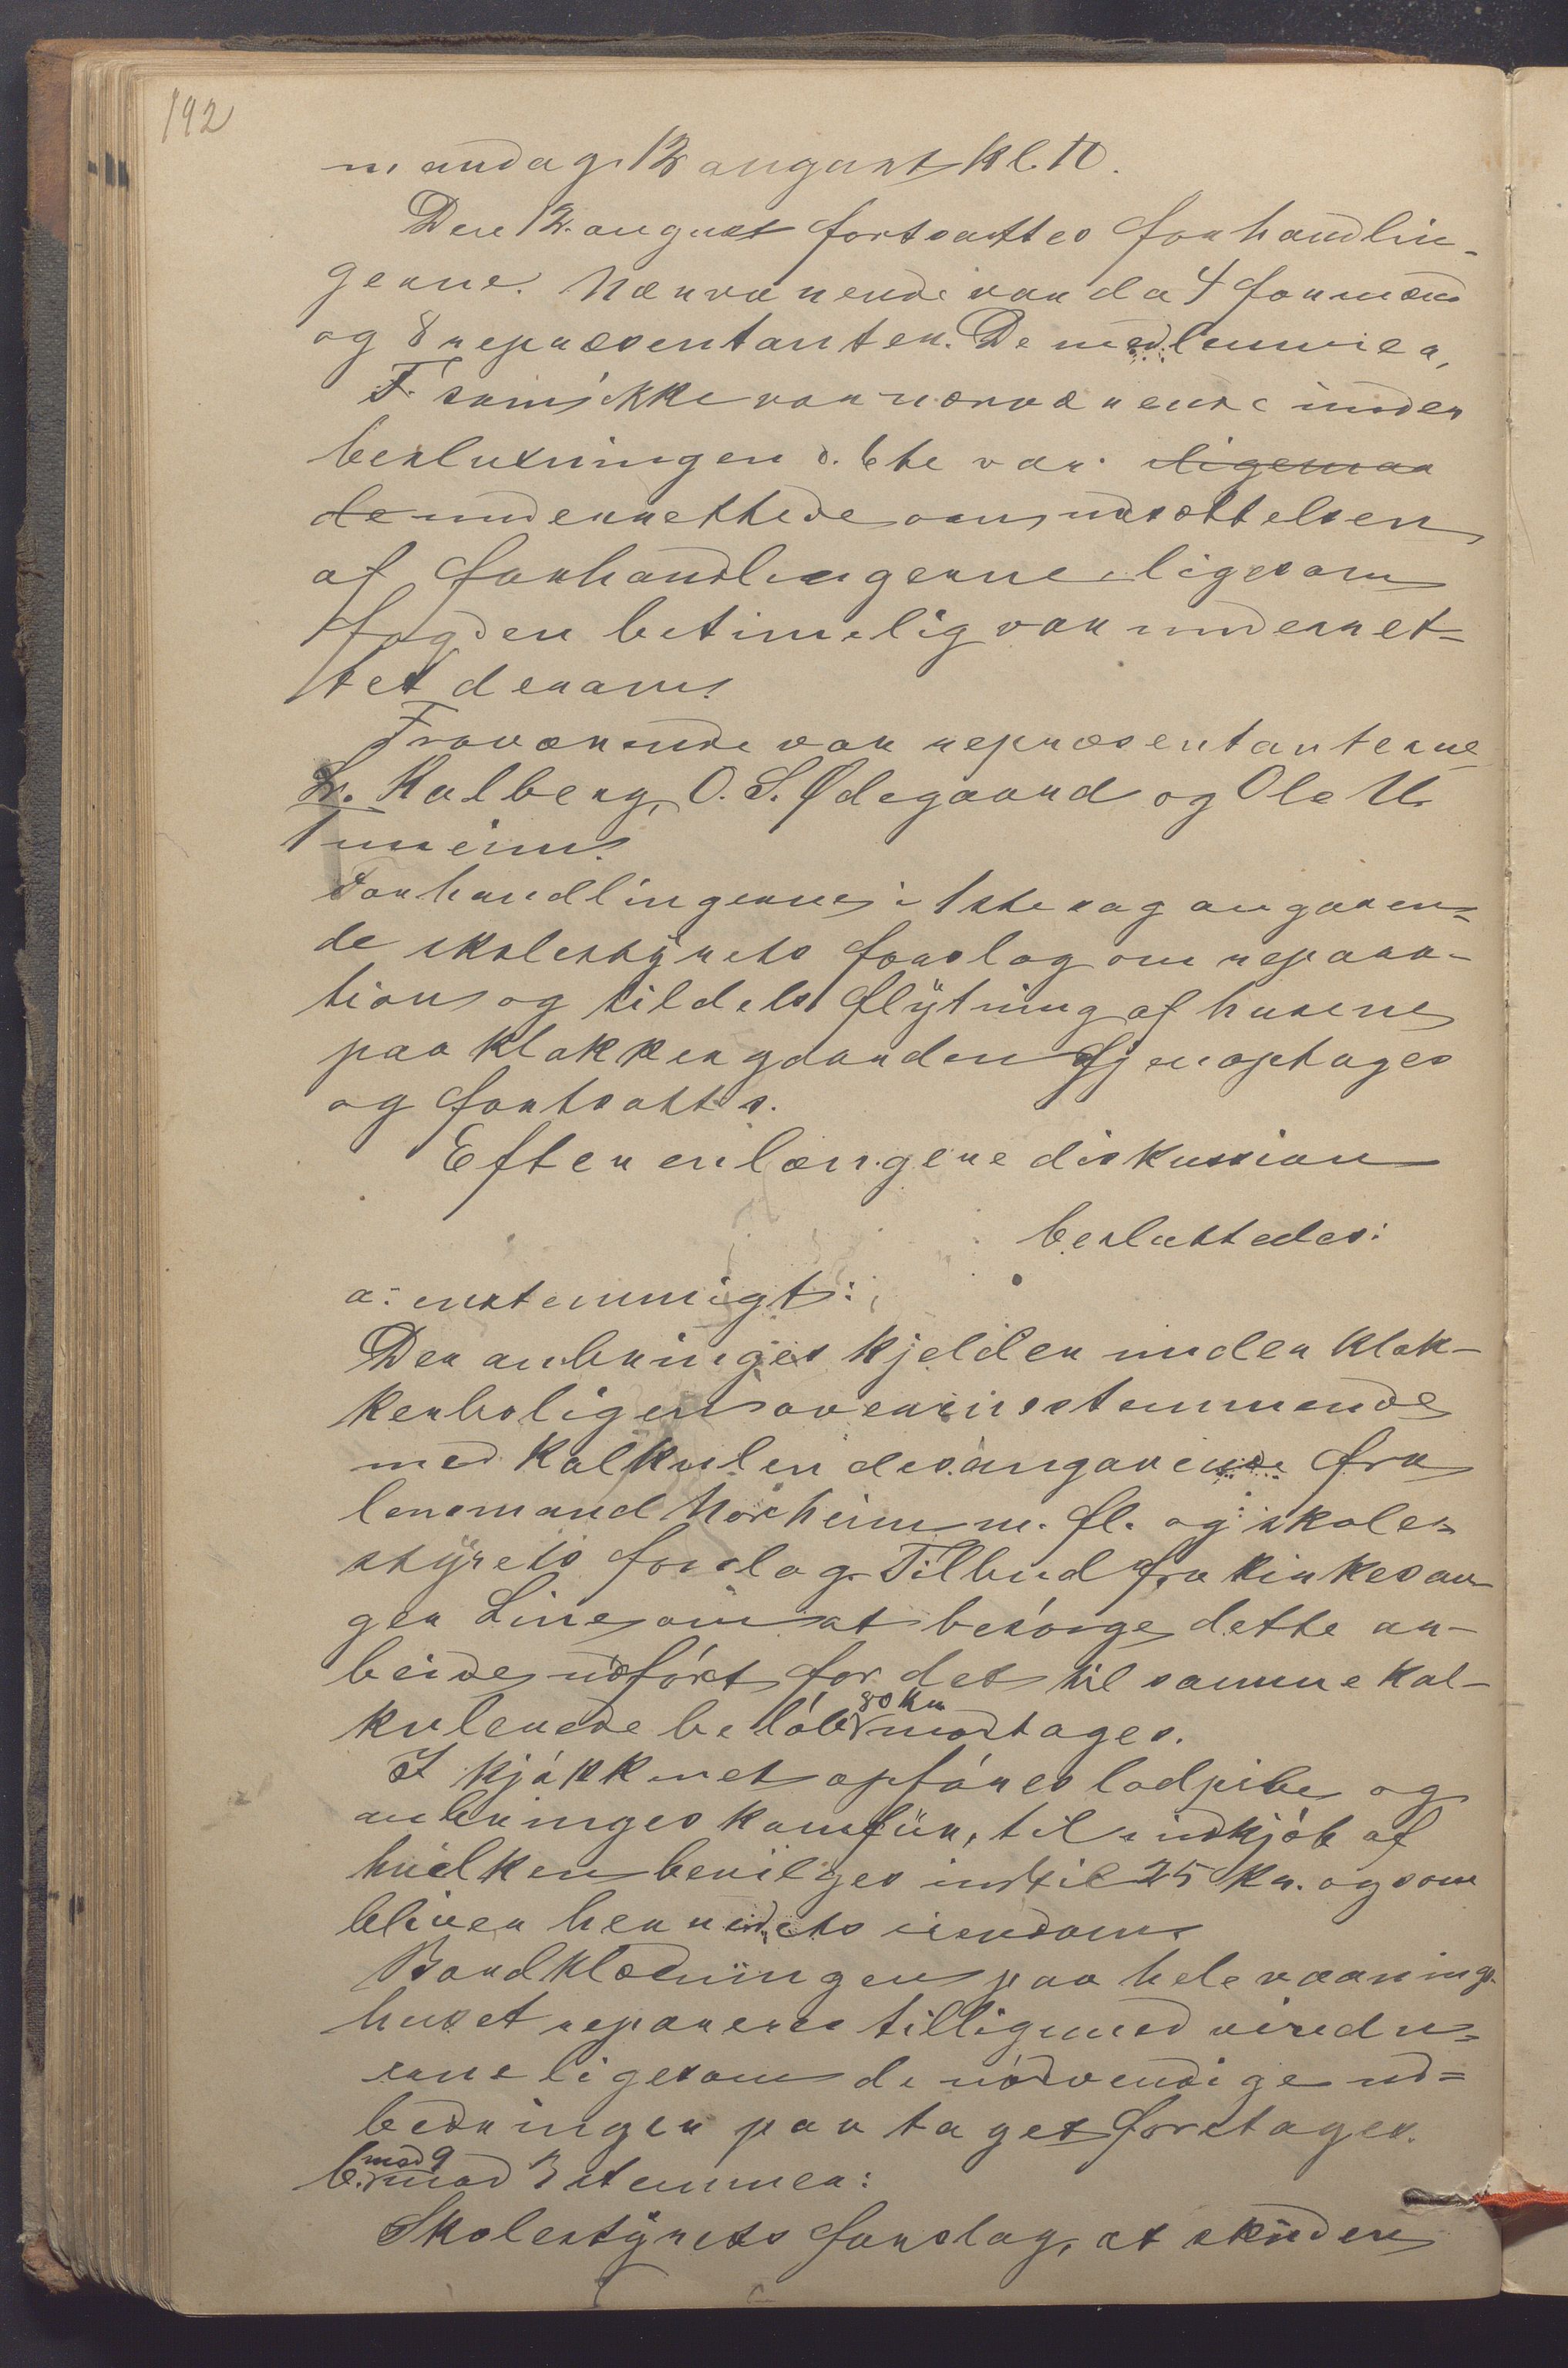 192
mandag 12 august kl. 10.
Den 12. august fortsattes forhandlin-
gerne. Nærværende var da 4 formænd
og 8 repræsentanter. De medlemmer,
som ikke var nærværende under
beslutningen d. 6te var ligesaa
de underrettede om udsættelsen
af forhandlingerne ligesom
fogden betimelig var underret-
tet derom.
Fraværende var repræsentanterne
Kalberg, O. S. Ødegaard og Ole U.
Tuneim.
Forhandlingerne i 1ste sag angaaen-
de skolestyrets forslag om repara-
tion og tildels flytning af husene
paa klokkergaarden gjenoptages
og fortsattes.
Efter en længere diskussion
besluttedes:
a: enstemmigt:
Der anbringes kjelder under klok-
kerboligen overensstemmende
med kalkulen desangaaende fra
lensmand Norheim m. fl. og skole-
styrets forslag. Tilbud fra kirkesan-
ger Line om at besörge dette ar-
beide udfört for det til samme kal-
kulerede belöb 80 kr modtages.
I kjökkenet opföres lodpibe og
anbringes komfür, til indkjöb af
hvilken bevilges indtil 25 kr. og som
bliver herredets eiendom.
Bordklædningen paa hele vaanings-
huset repareres tilligemed vindu-
erne ligesom de nödvendige ud-
bedringer paa taget foretages.
b. mod 9 mod 3 stemmer:
Skolestyrets forslag, at skuden